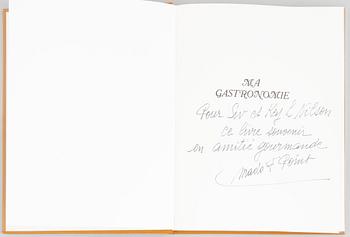 MA
GASTRONOMIE
Pour Sev et Kej L Nilson
ce livre souvenir
en amitié gourmande
Mado F Point